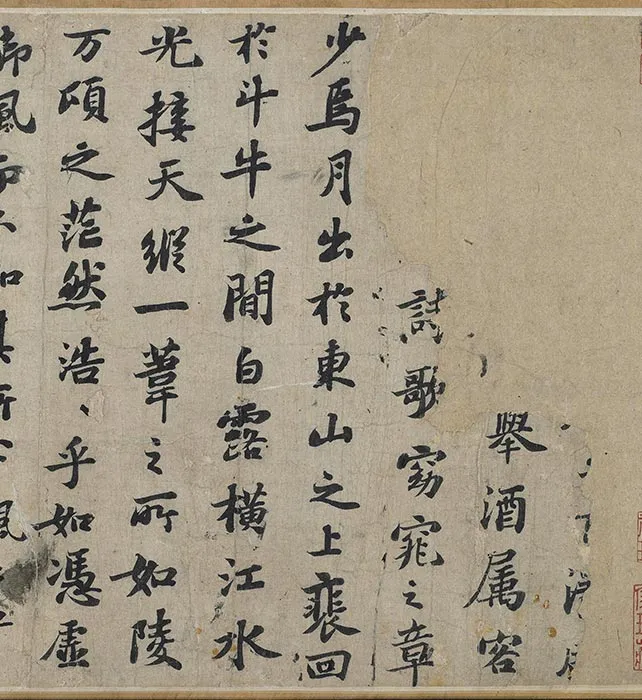 舉酒属客
詩歌窈窕之章
少焉月出於東山之上裴回
於斗牛之間白露橫江水
光接天縱一葦之所如陵
万頃之茫然浩〻乎如憑虛
御風而不知其所